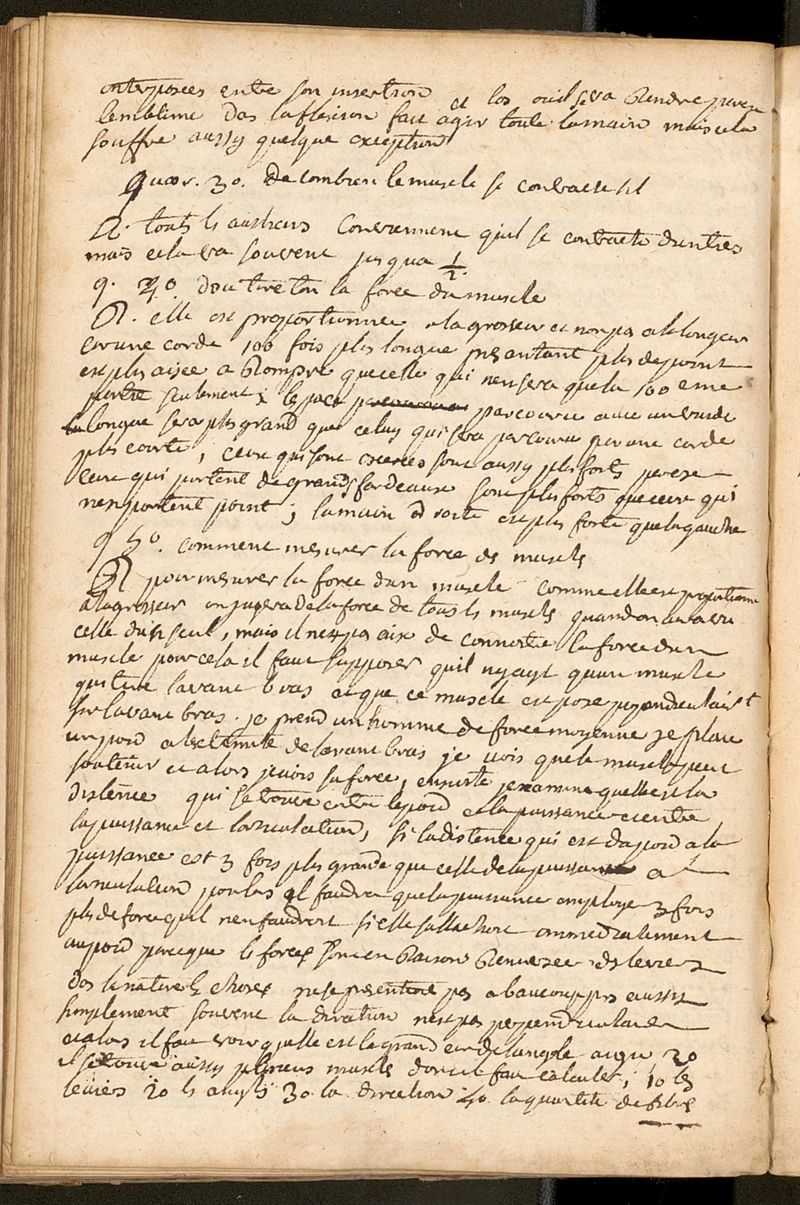 interposees entre son insertion et los ou il sera Rendre par ex
lemblime das la flexion fait agir toute la main mais cela
souffre aussy quelque exception
quaer. 3o. de combien le muscle se contracte til
R. touts ls autheurs conviennent quil se contracte dun tiers
mais cela va souvent jusqua 1/2.
q. 4o dou tire ton la force du muscle
R. elle est proportionnee a la grosseur et non pa a la longeur
car une corde 100 fois plus longue presentant plus de point
est plus aisée a Rompre que celle qui nen sera que la 100 eme
partie seulement; parcourir avec une corde
longue sera plus grand que celuy qui sera parcouru par une corde
plus courte, ceux qui sont exerces sont aussy plus forts par ex
ceux qui portent de grands fardeaux sont plus forts que ceux qui
nen portent point; la main d roite est plus forte que la gauche
q 5o. comment mesurer la force des muscls
R pour mesurer la force dun muscle comme elle est proportionne
a la grosseur on jugera de la force de touts ls muscls quand on aura vu
celle dun seul, mais il nest pa aisé de connoitre la force dun
muscle pour cela il faut supposer quil ny ayt quun muscle
qui tire lavant bras et que ce muscle est posé perpendiculairt
sur lavant bras. je prend un homme de force moyenne je place
un poid a lextremité de lavant bras je vois que le muscle peut
soutenir et alors jauris sa force, ensuitte jexamine quelle est la
distence qui se trouve entre le poid et la puissance et entre
la puissance et larticulation, si la distence qui est du poid a la
puissance est 3 fois plus grande que celle de la puissance a
larticulation pour lors il faudra que la puissance employe 3 fois
plus de force quil nen faudroit si elle sattachoit immediatement
au poid parceque ls forces sont en Raison Renversée des leviers
das la nature ls choses ne se presentent pas a beaucoup pres aussy
simplement souvent la direction nest pas perpendiculaire
et alors il faut voir quelle est la grandeur de langle aigu, 20
il se trouve aussy plusieurs muscls dont il faut calculer; 10 les
leviers 20 ls angls 30 la direction 40. la quantité de fibrs